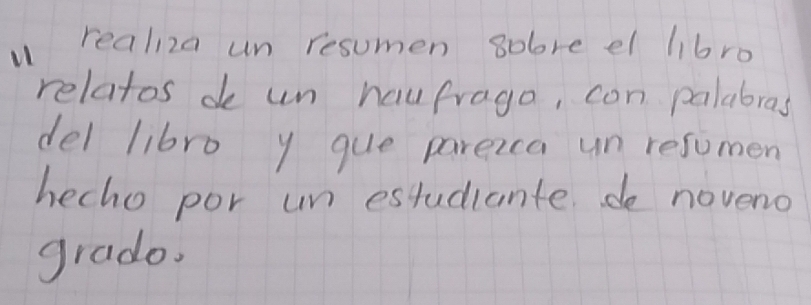 " realiza un resumen sobre el libro
relatos de un naufrago, con palabras
del libro y que parezca un resumen
hecho por un estudiante de noveno
grado.